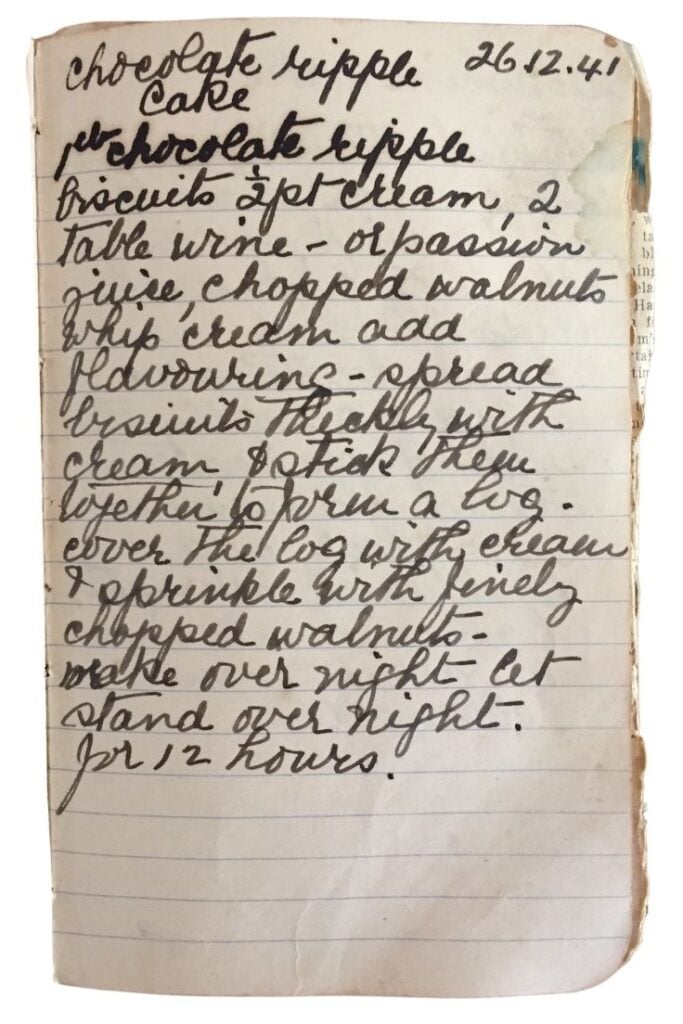 chocolate ripple 26.12.41
cake
1 lb chocolate ripple
biscuits ½pt cream, 2
table wine - or passion
juice, chopped walnuts
whip cream add
flavouring - spread
biscuits thickly with
cream & stick them
together to form a log.
cover the log with cream
& sprinkle with finely
chopped walnuts-
make over night let
stand over night.
for 12 hours.